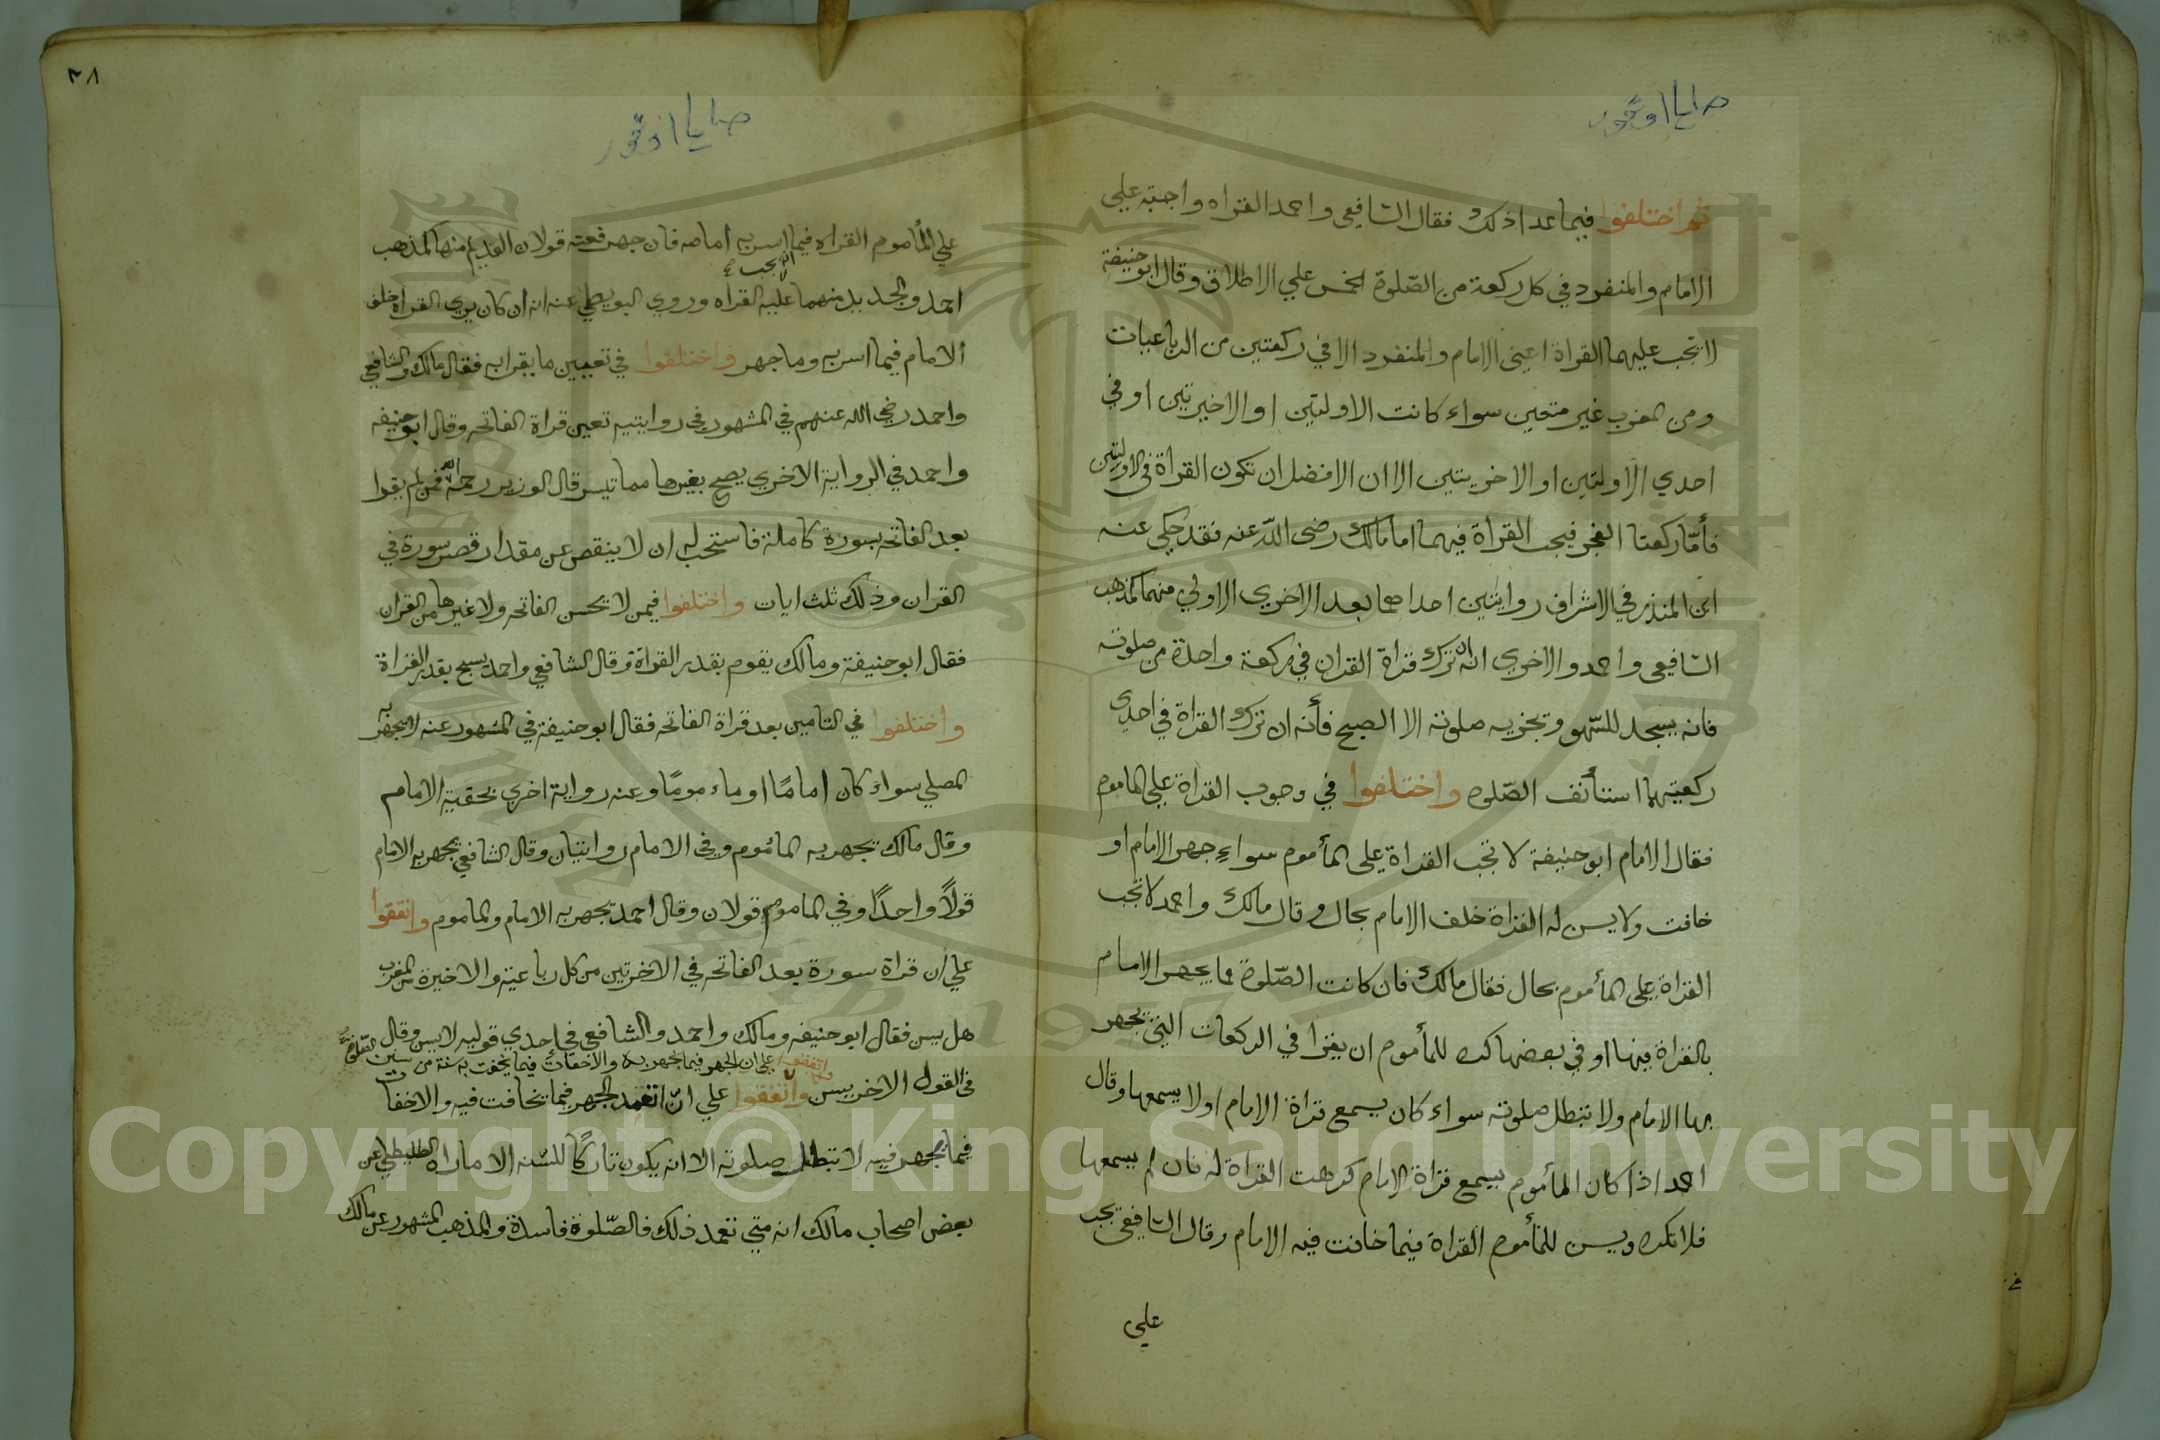 ثم اختلفوا فيما عدا ذلك فقال الشافعي واحمد القراه واجبة علي
الامام والمنفرد في كل ركعة من الصّلوة الخمس علي الاطلاق وقال ابو حنيفة
لا تجب عليهما القراة اعني الامام والمنفرد الا في ركعتين من الرباعيات
ومن المغرب غير متعين سواء كانت الاولتين او الاخيرتين او في
احدي الاولتين او الاخريتين الا ان الافضل ان تكون القراة في الاولتين
فأمّا ركعتا الفجر فيجب القراة فيهما اما مالك رضى اللّه عنه فقد حكي عنه
ابن المنذر في الاشراف روايتين احداهما بعد الاخري الاولي منهما كمذهب
الشافعي واحمد والاخري انه ان ترك قراة القران في ركعة واحدة من صلوته
فانه يسجد للسّهو وتجزيه صلوته الا الصبح فأنه ان ترك القراة في احدى
ركعتيهما استأنف الصّلوه واختلفوا في وجوب القراة على الماموم
فقال الامام ابو حنيفة لا تجب القراة على المأموم سواء جهر الامام او
خافت ولا يسن له القراة خلف الامام بحال وقال مالك واحمد لا تجب
القراة على المأموم بحال فقال مالك فان كانت الصّلوة مما يجهر الامام
بالقراة فيها او في بعضها كره للمأموم ان يقرا في الركعات التي يجهر
بها الامام ولا تبطل صلوته سواء كان يسمع قراة الامام او لا يسمعها وقال
احمد اذا كان المأموم يسمع قراة الامام كرهت القراة له فان لم يسمعها
فلا تكره ويسن للمأموم القراة فيما خافت فيه الامام وقال الشافعي تجب
علي
٣٨
علي المأموم القراه فيما اسر به امامه فان جهر فعنه قولان القديم منهما كمذهب
احمد والجديد منهما عليه القراه وروي البويطي عنه انه ان كان يري القراة خلف
الامام فيما اسر به وما جهر واختلفوا في تعيين ما يقرا به فقال مالك والشافعي
واحمد رضي الله عنهم في المشهور في روايتيه تعين قراة الفاتحه وقال ابو حنيفه
واحمد في الرواية الاخري يصح بغيرها مما تيسر قال الوزير رحمه اللّه فمن لم يقرا
بعد الفاتحه بسورة كاملة فاستحب له ان لا ينقص عن مقدار قصر سورة في
القران وذلك ثلث ايات واختلفوا فيمن لا يحسن الفاتحه ولا غيرها من القران
فقال ابو حنيفة ومالك يقوم بقدر القراة وقال الشافعي واحمد يسبح بقدر القراة
واختلفوا في التامين بعد قراة الفاتحه فقال ابو حنيفة في المشهور عنه لا يجهر به
المصلي سواء كان امامًا او ماءمومًا وعنه رواية اخري يخفيه الامام
وقال مالك يجهر به المأموم وفي الامام روايتان وقال الشافعي يجهر به الامام
قولًا واحدًا وفي الماموم قولان وقال احمد يجهر به الامام والماموم واتفقوا
علي أن قراة سورة بعد الفاتحه في الاخرتين من كل رباعية والاخيرة من المغرب
هل يسن فقال ابو حنيفه ومالك واحمد والشافعي في إحدي قوليه لا يسن وقال
واتفقوا علي ان الجهر فيما يجهر به والاخفات فيما يخفت به سنة من سنن الصّلوة
في القول الاخر يسن واتفقوا علي انّ تعمد الجهر فيما يخافت فيه والاخفات
فيما يجهر فيه لا تبطل صلوته الا انه يكون تاركًا للسّنه الا ما راه الطليطلي عن
بعض اصحاب مالك انه متي تعمد ذلك فالصّلوة فاسدة والمذهب المشهور عن مالك
Copyright © King Saud University